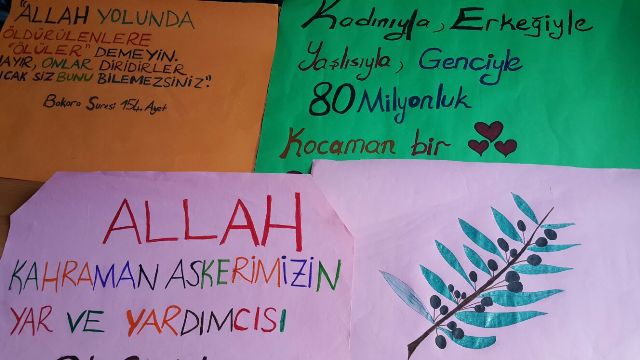 "ALLAH YOLUNDA
ÖLDÜRÜLENLERE
"ÖLÜLER" DEMEYİN.
HAYIR, ONLAR DİRİDİRLER
ANCAK SİZ BUNU BİLEMEZSİNİZ".
Bakara Suresi 154. Ayet
Kadınıyla, Erkeğiyle
Yaşlısıyla, Genciyle
80 Milyonluk
Kocaman bir
ALLAH
KAHRAMAN ASKERİMİZİN
YAR VE YARDIMCISI